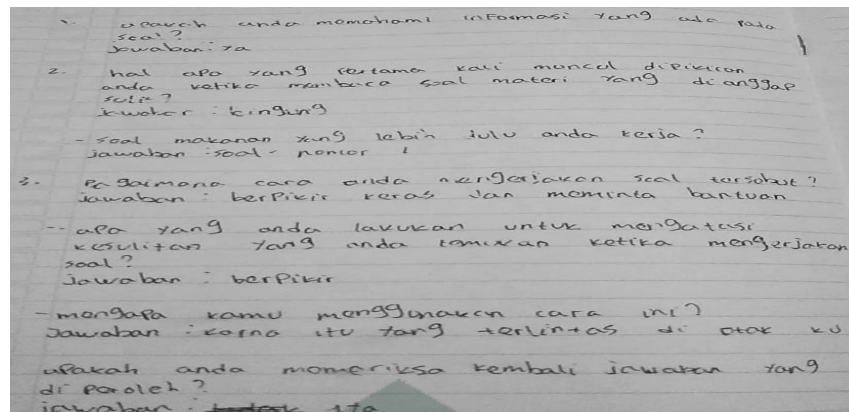 1. apakah anda memahami informasi yang ada pada
soal?
Jawaban: ya
2. hal apa yang pertama kali muncul dipikiran
anda ketika membaca soal materi yang di anggap
sulit?
: bingung
- soal makanan yang lebih dulu anda kerja?
jawaban : soal- nomor 1
3. Bagaimana cara anda mengerjakan soal tersebut?
jawaban : berpikir keras dan meminta bantuan
-- apa yang anda lakukan untuk mengatasi
kesulitan yang anda temukan ketika mengerjakan
soal?
Jawaban : berpikir
- mengapa kamu menggunakan cara ini?
Jawaban : karna itu yang terlintas di otak ku
apakah anda memeriksa kembali jawaban yang
di peroleh?
jawaban :